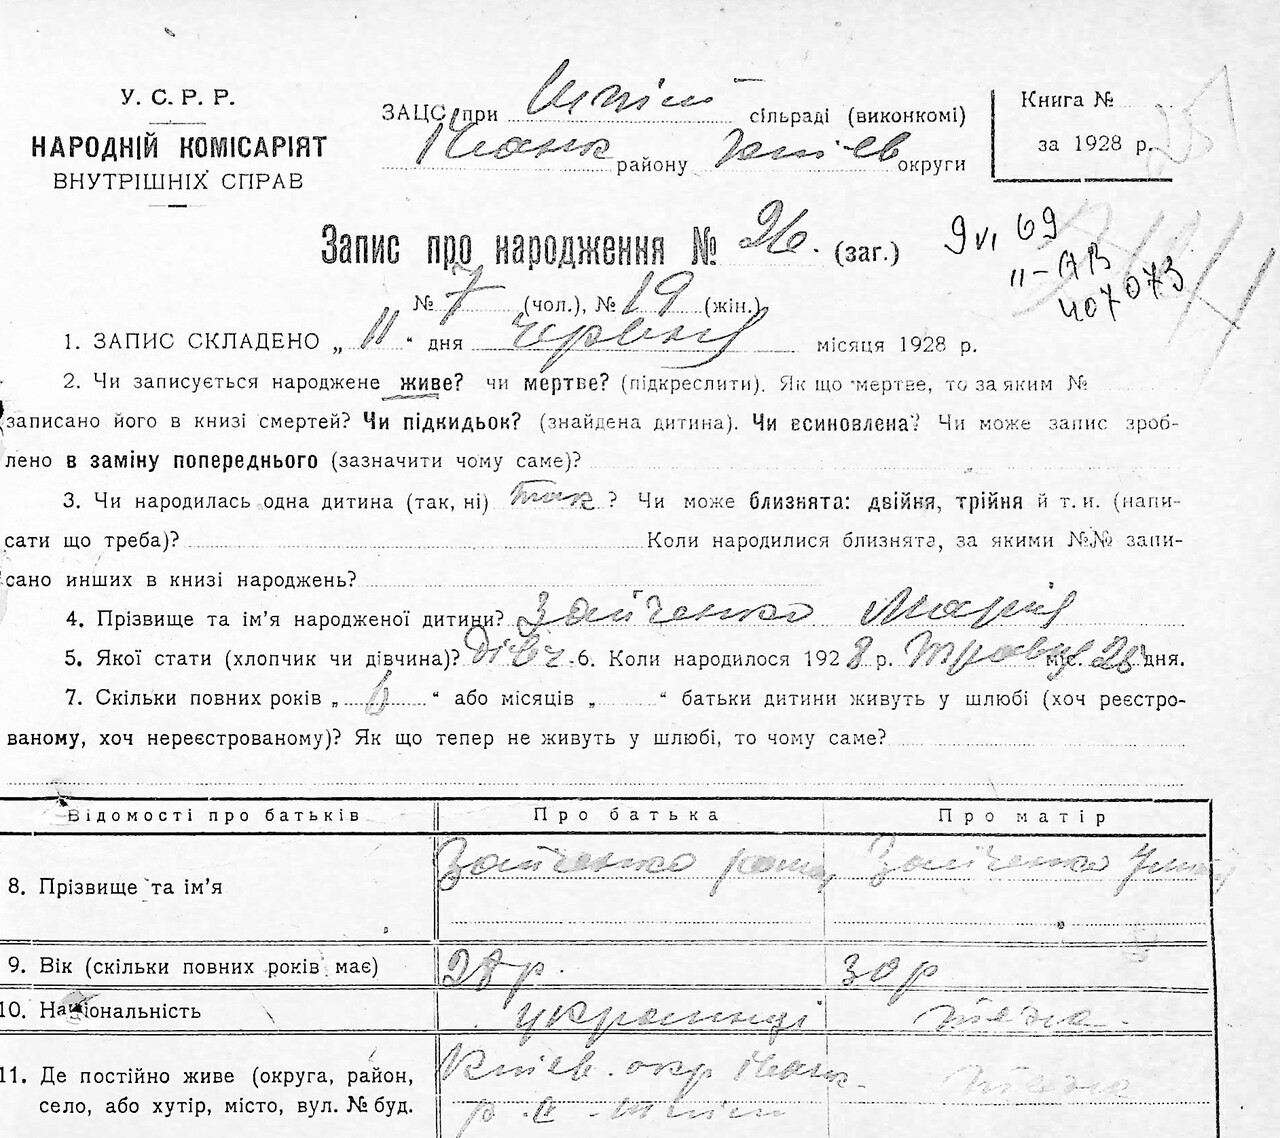 У. С. Р. Р.
НАРОДНІЙ КОМІСАРІЯТ
ВНУТРІШНІХ СПРАВ
ЗАЦС при Шпілі сільраді (виконкомі)
Іванк району Київ округи
Книга №
за 1928 р.
Запис про народження № 26. (заг.)
9 VI 69
II-АВ
407073
№ 7 (чол.), № 19 (жін.)
1. ЗАПИС СКЛАДЕНО „ 11 “ дня червня місяця 1928 р.
2. Чи записується народжене живе? чи мертве? (підкреслити). Як що мертве, то за яким №
записано його в книзі смертей? Чи підкидьок? (знайдена дитина). Чи всиновлена? Чи може запис зроб-
лено в заміну попереднього (зазначити чому саме)?
3. Чи народилась одна дитина (так, ні) так ? Чи може близнята: двійня, трійня й т. и. (напи-
сати що треба)? Коли народилися близнята, за якими №№ запи-
сано инших в книзі народжень?
4. Прізвище та ім’я народженої дитини? Зайченко Марія
5. Якої стати (хлопчик чи дівчина)? дівч. 6. Коли народилося 1928 р. травня міс. 25 дня.
7. Скільки повних років „ 6 “ або місяців „ “ батьки дитини живуть у шлюбі (хоч реєстро-
ваному, хоч нереєстрованому)? Як що тепер не живуть у шлюбі, то чому саме?
Відомості про батьків Про батька Про матір
8. Прізвище та ім’я Зайченко Зайченко
9. Вік (скільки повних років має) 28 р. 30 р
10. Національність українці теж
11. Де постійно живе (округа, район, Київ. окр Іванк.
село, або хутір, місто, вул. № буд. р. с. Шпілі